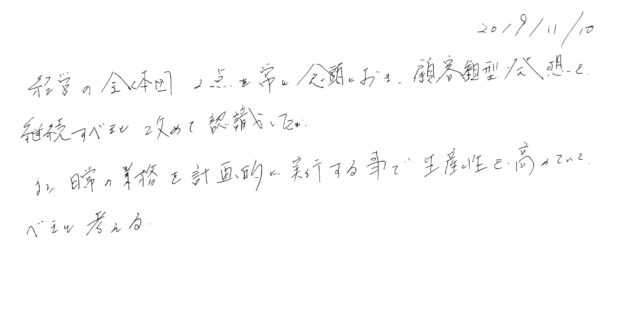 2019/11/10
経営の全体図 2点を常に念頭におき、顧客観型発想を
継続すべきと改めて認識した。
又、日常の業務を計画的に実行する事で生産性を高めていく
べきと考える。